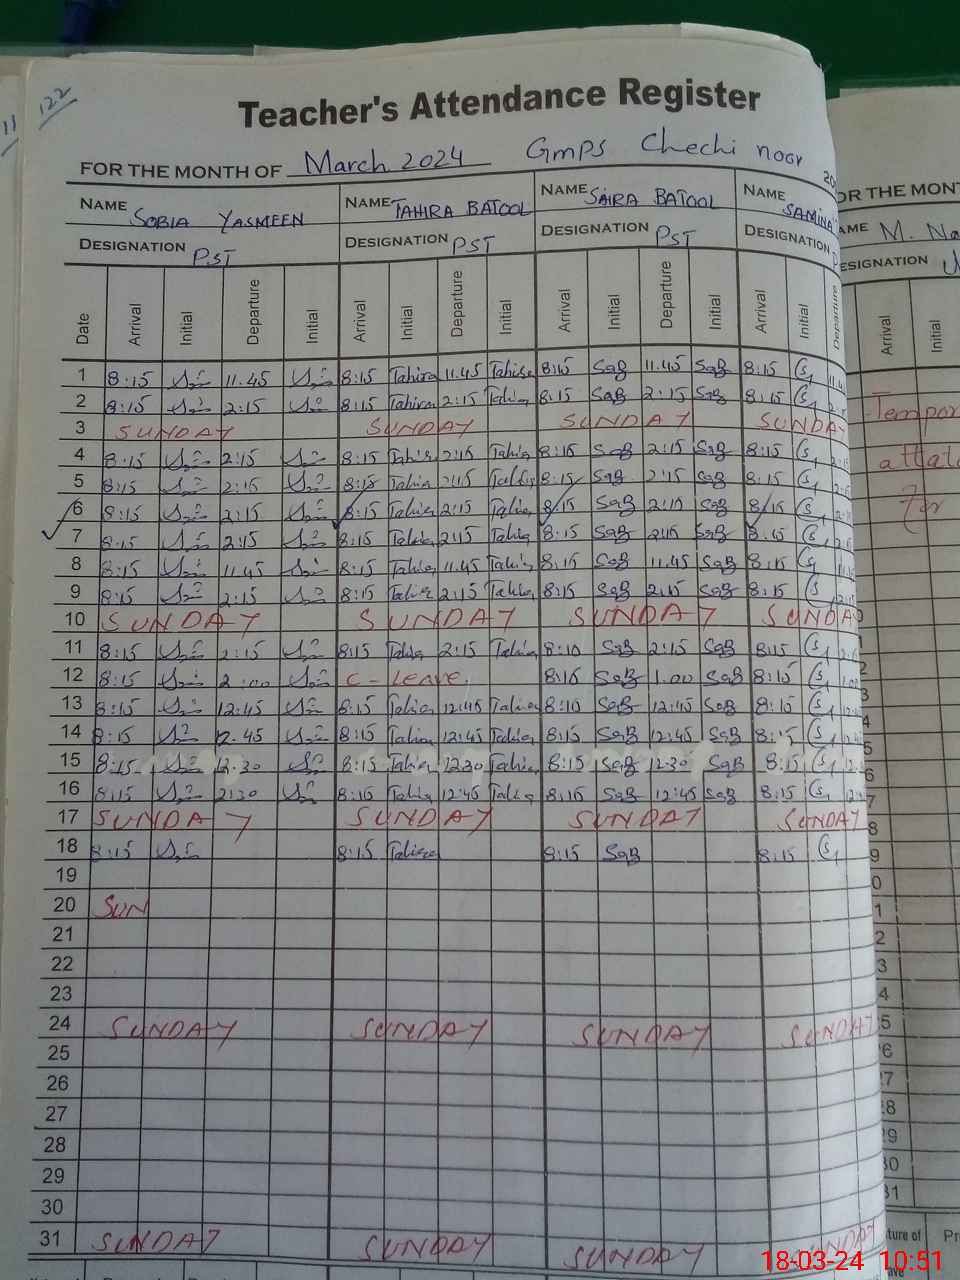 122
11
Teacher's Attendance Register
FOR THE MONTH OF March 2024 GMPS Chechi noor 20
NAME SOBIA YASMEEN NAME TAHIRA BATOOL NAME SAIRA BATOOL NAME SAMINA
DESIGNATION PST DESIGNATION PST DESIGNATION PST DESIGNATION
Date Arrival Initial Departure Initial Arrival Initial Departure Initial Arrival Initial Departure Initial Arrival Initial Departure
1 8:15 11.45 8:15 Tahira 11.45 Tahira 8:15 SaB 11.45 SaB 8:15
2 8:15 2:15 8:15 Tahira 2:15 Tahira 8:15 SaB 2:15 SaB 8:15
3 SUNDAY SUNDAY SUNDAY SUNDAY
4 8:15 2:15 8:15 Tahira 2:15 Tahira 8:15 SaB 2:15 SaB 8:15
5 8:15 2:15 8:15 Tahira 2:15 Tahira 8:15 SaB 2:15 SaB 8:15
6 8:15 2:15 8:15 Tahira 2:15 Tahira 8:15 SaB 2:15 SaB 8:15
7 8:15 2:15 8:15 Tahira 2:15 Tahira 8:15 SaB 2:15 SaB 8:15
8 8:15 11.45 8:15 Tahira 11.45 Tahira 8:15 SaB 11.45 SaB 8:15
9 8:15 2:15 8:15 Tahira 2:15 Tahira 8:15 SaB 2:15 SaB 8:15
10 SUNDAY SUNDAY SUNDAY SUNDA
11 8:15 2:15 8:15 Tahira 2:15 Tahira 8:10 SaB 2:15 SaB 8:15
12 8:15 2:00 C-Leave 8:15 SaB 1.00 SaB 8:15
13 8:15 12:45 8:15 Tahira 12:45 Tahira 8:10 SaB 12:45 SaB 8:15
14 8:15 2.45 8:15 Tahira 12:45 Tahira 8:15 SaB 12:45 SaB 8:15
15 8:15 12.30 8:15 Tahira 12.30 Tahira 8:15 SaB 12.30 SaB 8:15
16 8:15 2:30 8:15 Tahira 12:45 Tahira 8:15 SaB 12:45 SaB 8:15
17 SUNDAY SUNDAY SUNDAY SUNDAY
18 8:15 8:15 Tahira 8:15 SaB 8:15
19
20 SUN
21
22
23
24 SUNDAY SUNDAY SUNDAY SUNDAY
25
26
27
28
29
30
31 SUNDAY SUNDAY SUNDAY SUNDAY
OR THE MONT
AME M. Na
ESIGNATION
Arrival Initial
Tempor
attat
for
ture of
18-03-24 10:51